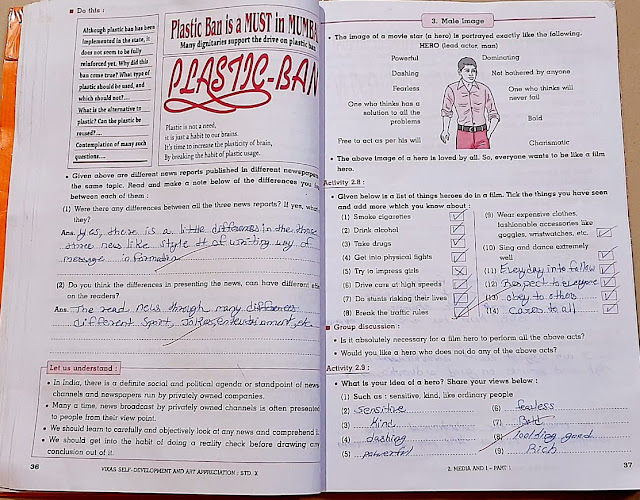 ■ Do this :
Although plastic ban has been
implemented in the state, it
does not seem to be fully
reinforced yet. Why did this
ban come true? What type of
plastic should be used, and
which should not?....
What is the alternative to
plastic? Can the plastic be
reused?....
Contemplation of many such
questions....
Plastic Ban is a MUST in MUMBA
Many dignitaries support the drive on plastic ban
PLASTIC-BAN
Plastic is not a need,
it is just a habit to our brains.
It's time to increase the plasticity of brain,
By breaking the habit of plastic usage.
• Given above are different news reports published in different newspapers
the same topic. Read and make a note below of the differences you
between each of them :
(1) Were there any differences between all the three news reports? If yes, what
they?
Ans. Yes, there is a little differences in the three
three news like style of writing way of
message information
(2) Do you think the differences in presenting the news, can have different
on the readers?
Ans. The read news through many differences
different Sport, Jokes, entertainment, etc.
Let us understand :
• In India, there is a definite social and political agenda or standpoint of news
channels and newspapers run by privately owned companies.
• Many a time, news broadcast by privately owned channels is often presented
to people from their view point.
• We should learn to carefully and objectively look at any news and comprehend it.
• We should get into the habit of doing a reality check before drawing any
conclusion out of it.
36 VIKAS SELF-DEVELOPMENT AND ART APPRECIATION : STD. X
3. Male Image
• The image of a movie star (a hero) is portrayed exactly like the following.
HERO (lead actor, man)
Powerful
Dominating
Dashing
Not bothered by anyone
Fearless
One who thinks will
never fail
One who thinks has a
solution to all the
problems
Bold
Free to act as per his will
Charismatic
• The above image of a hero is loved by all. So, everyone wants to be like a film
hero.
Activity 2.8 :
• Given below is a list of things heroes do in a film. Tick the things you have seen
and add more which you know about :
(1) Smoke cigarettes ✓
(2) Drink alcohol ✓
(3) Take drugs ✓
(4) Get into physical fights ✓
(5) Try to impress girls ✗
(6) Drive cars at high speeds ✓
(7) Do stunts risking their lives ✓
(8) Break the traffic rules ✓
(9) Wear expensive clothes,
fashionable accessories like
goggles, wristwatches, etc. ✓
(10) Sing and dance extremely
well ✓
(11) Everyday into follow ✓
(12) Respect to everyone ✓
(13) obey to others ✓
(14) cares to all ✓
■ Group discussion :
• Is it absolutely necessary for a film hero to perform all the above acts?
• Would you like a hero who does not do any of the above acts?
Activity 2.9 :
• What is your idea of a hero? Share your views below :
(1) Such as : sensitive, kind, like ordinary people
(2) sensitive
(3) Kind
(4) dashing
(5) powerful
(6) fearless
(7) Bold
(8) looking good
(9) Rich
2. MEDIA AND I – PART 1 37